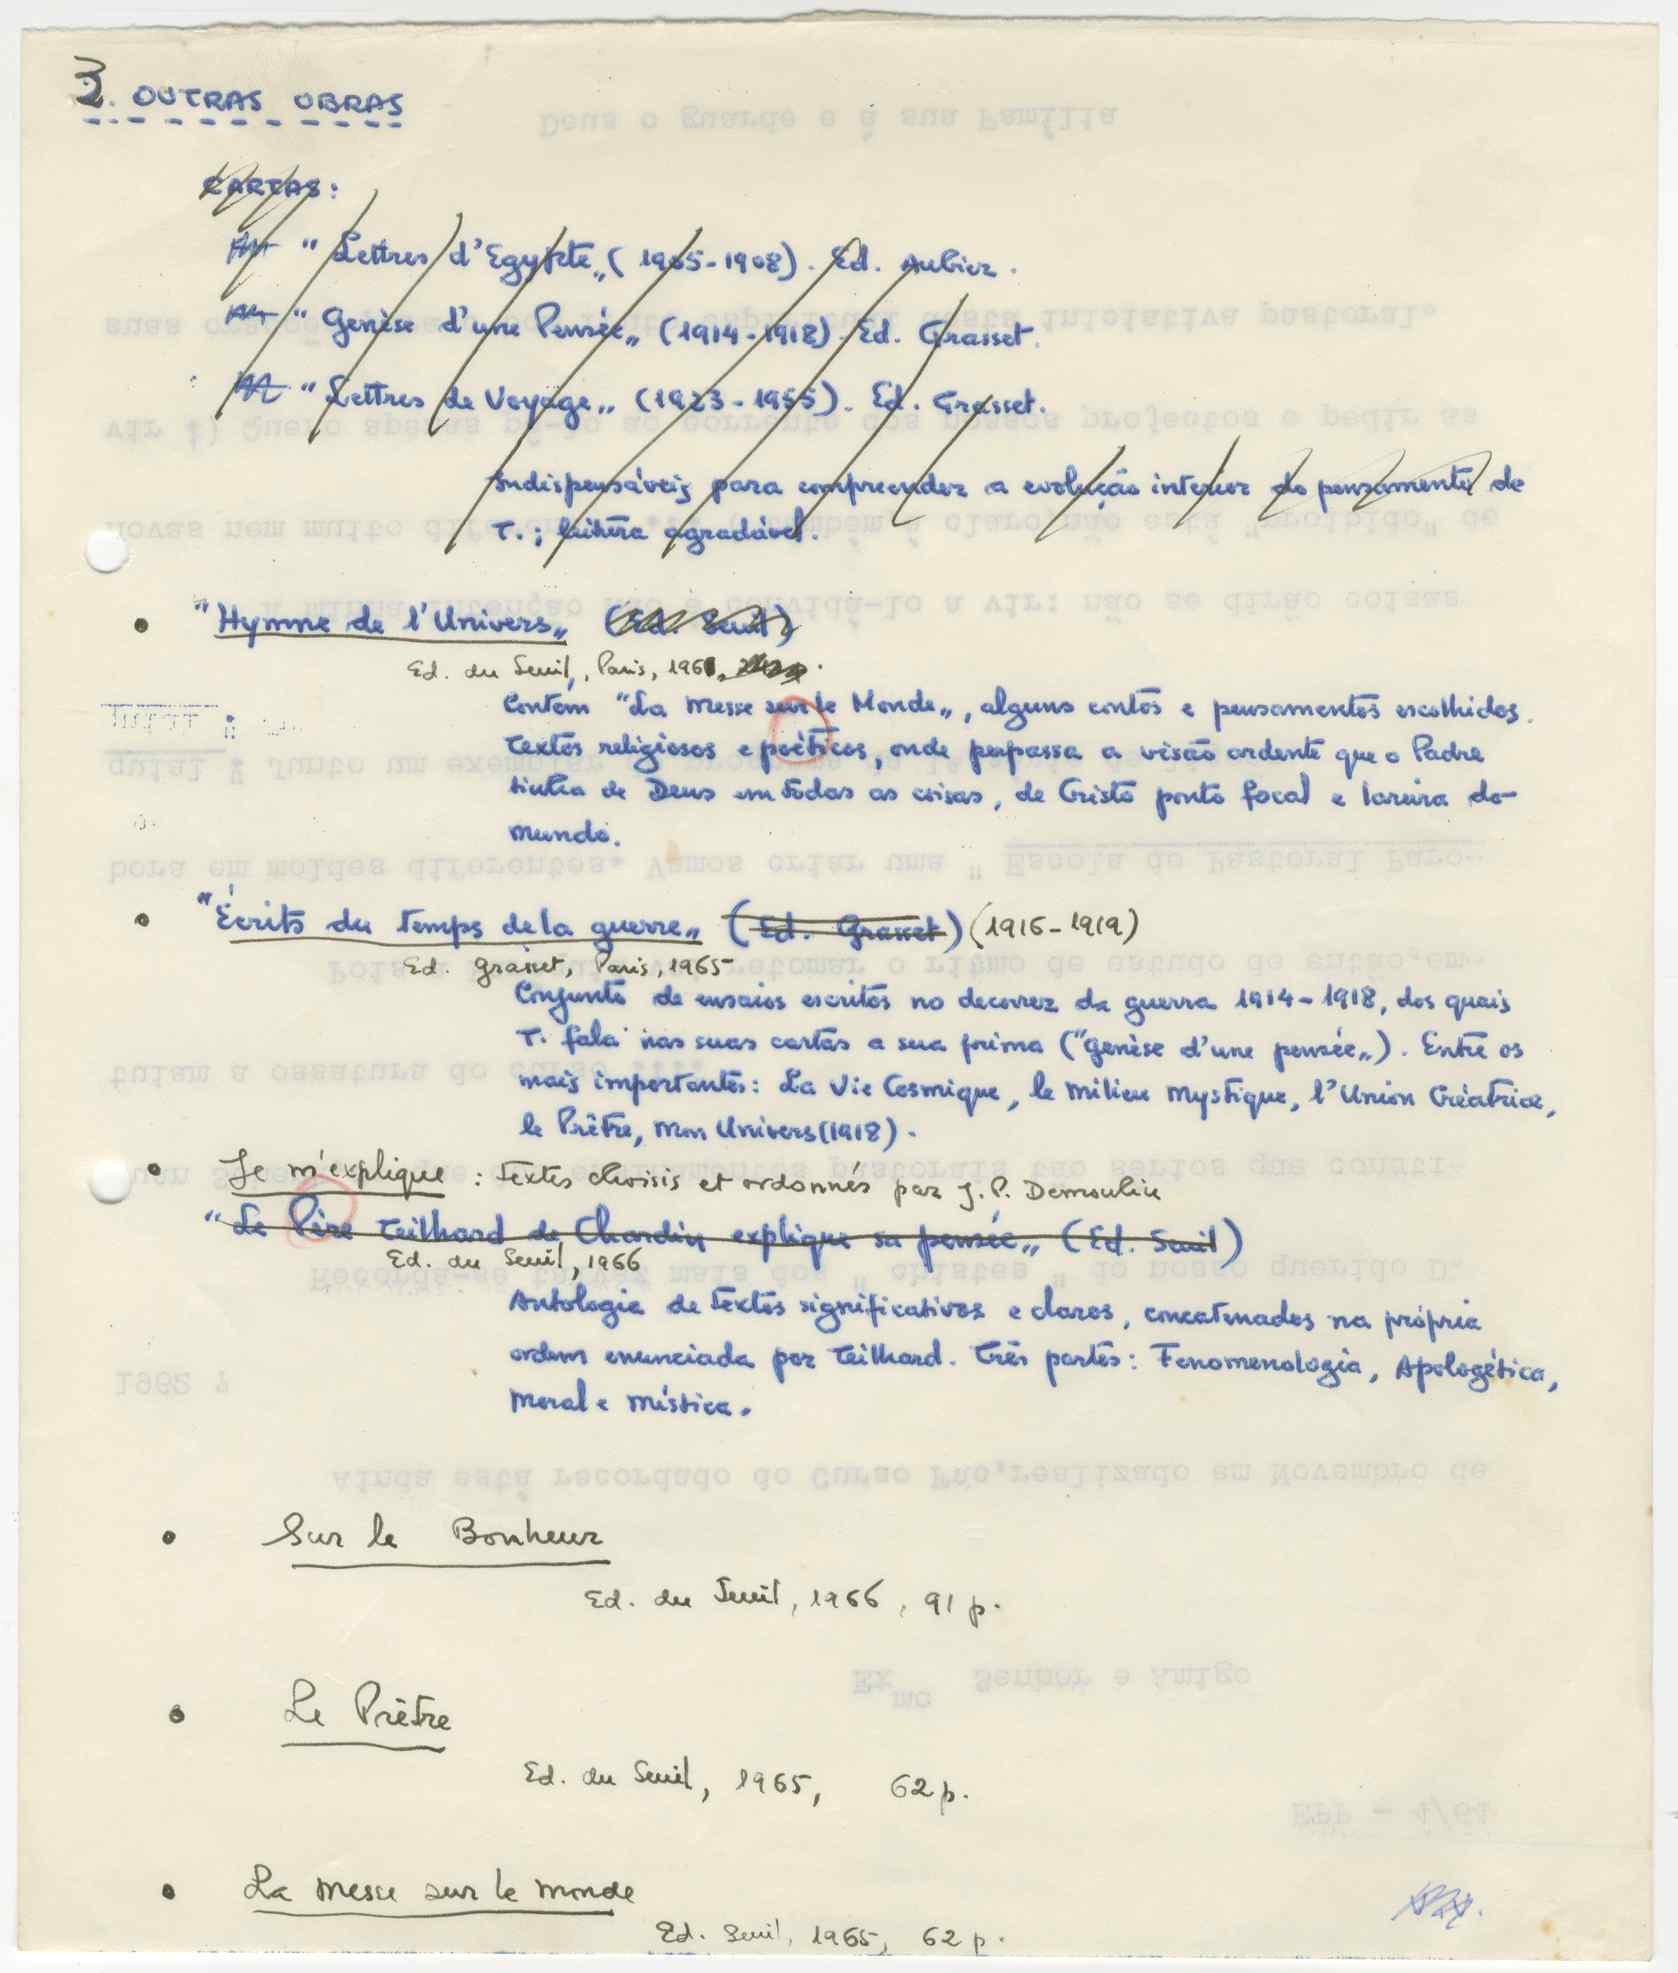 3. OUTRAS OBRAS
CARTAS:
"Lettres d'Egypte„ (1905-1908). Ed. Aubier.
"Genèse d'une Pensée„ (1914-1918). Ed. Grasset.
"Lettres de Voyage„ (1923-1955). Ed. Grasset.
Indispensáveis para compreender a evolução interior do pensamento de
T.; leitura agradável.
• "Hymne de l'Univers„ (Ed. Seuil)
Ed. du Seuil, Paris, 1961,
Contém "La Messe sur le Monde„, alguns contos e pensamentos escolhidos.
Textos religiosos e poéticos, onde perpassa a visão ardente que o Padre
tinha de Deus em todas as coisas, de Cristo ponto focal e lareira do
mundo.
• "Écrits du temps de la guerre„ (Ed. Grasset) (1916-1919)
Ed. Grasset, Paris, 1965
Conjunto de ensaios escritos no decorrer da guerra 1914-1918, dos quais
T. fala nas suas cartas a sua prima ("Genèse d'une pensée„). Entre os
mais importantes: La Vie Cosmique, le Milieu Mystique, l'Union Créatrice,
le Prêtre, Mon Univers (1918).
• Je m'explique : Textes choisis et ordonnés par J. P. Demoulin
"Le Père Teilhard de Chardin explique sa pensée„ (Ed. Seuil)
Ed. du Seuil, 1966
Antologia de textos significativos e claros, concatenados na própria
ordem enunciada por Teilhard. Três partes: Fenomenologia, Apologética,
Moral e Mística.
• Sur le Bonheur
Ed. du Seuil, 1966, 91 p.
• Le Prêtre
Ed. du Seuil, 1965, 62 p.
• La Messe sur le monde
Ed. Seuil, 1965, 62 p.